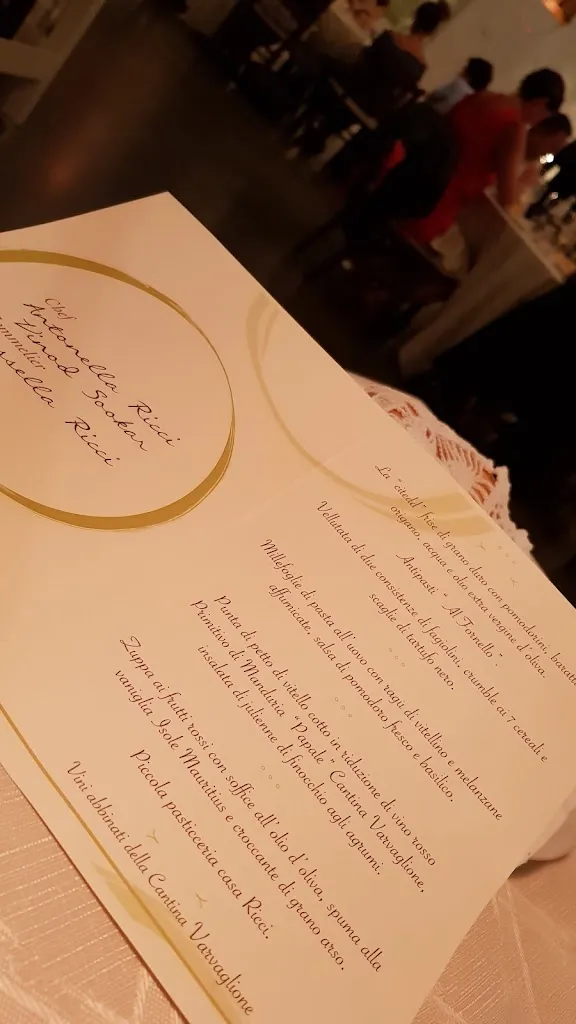 Chef
Antonella Ricci
Vinod Sookar
Sommelier
Rossella Ricci
La "citedd" frise di grano duro con pomodorini,
origano, acqua e olio extra vergine d'oliva.
Antipasti "Al Fornello".
Vellutata di due consistenze di fagiolini, crumble ai 7 cereali e
scaglie di tartufo nero.
Millefoglie di pasta all'uovo con ragù di vitellino e melanzane
affumicate, salsa di pomodoro fresco e basilico.
Punta di petto di vitello cotto in riduzione di vino rosso
Primitivo di Manduria "Papale" Cantina Varvaglione,
insalata di julienne di finocchio agli agrumi.
Zuppa ai frutti rossi con soffice all'olio d'oliva, spuma alla
vaniglia Isole Mauritius e croccante di grano arso.
Piccola pasticceria casa Ricci.
Vini abbinati della Cantina Varvaglione